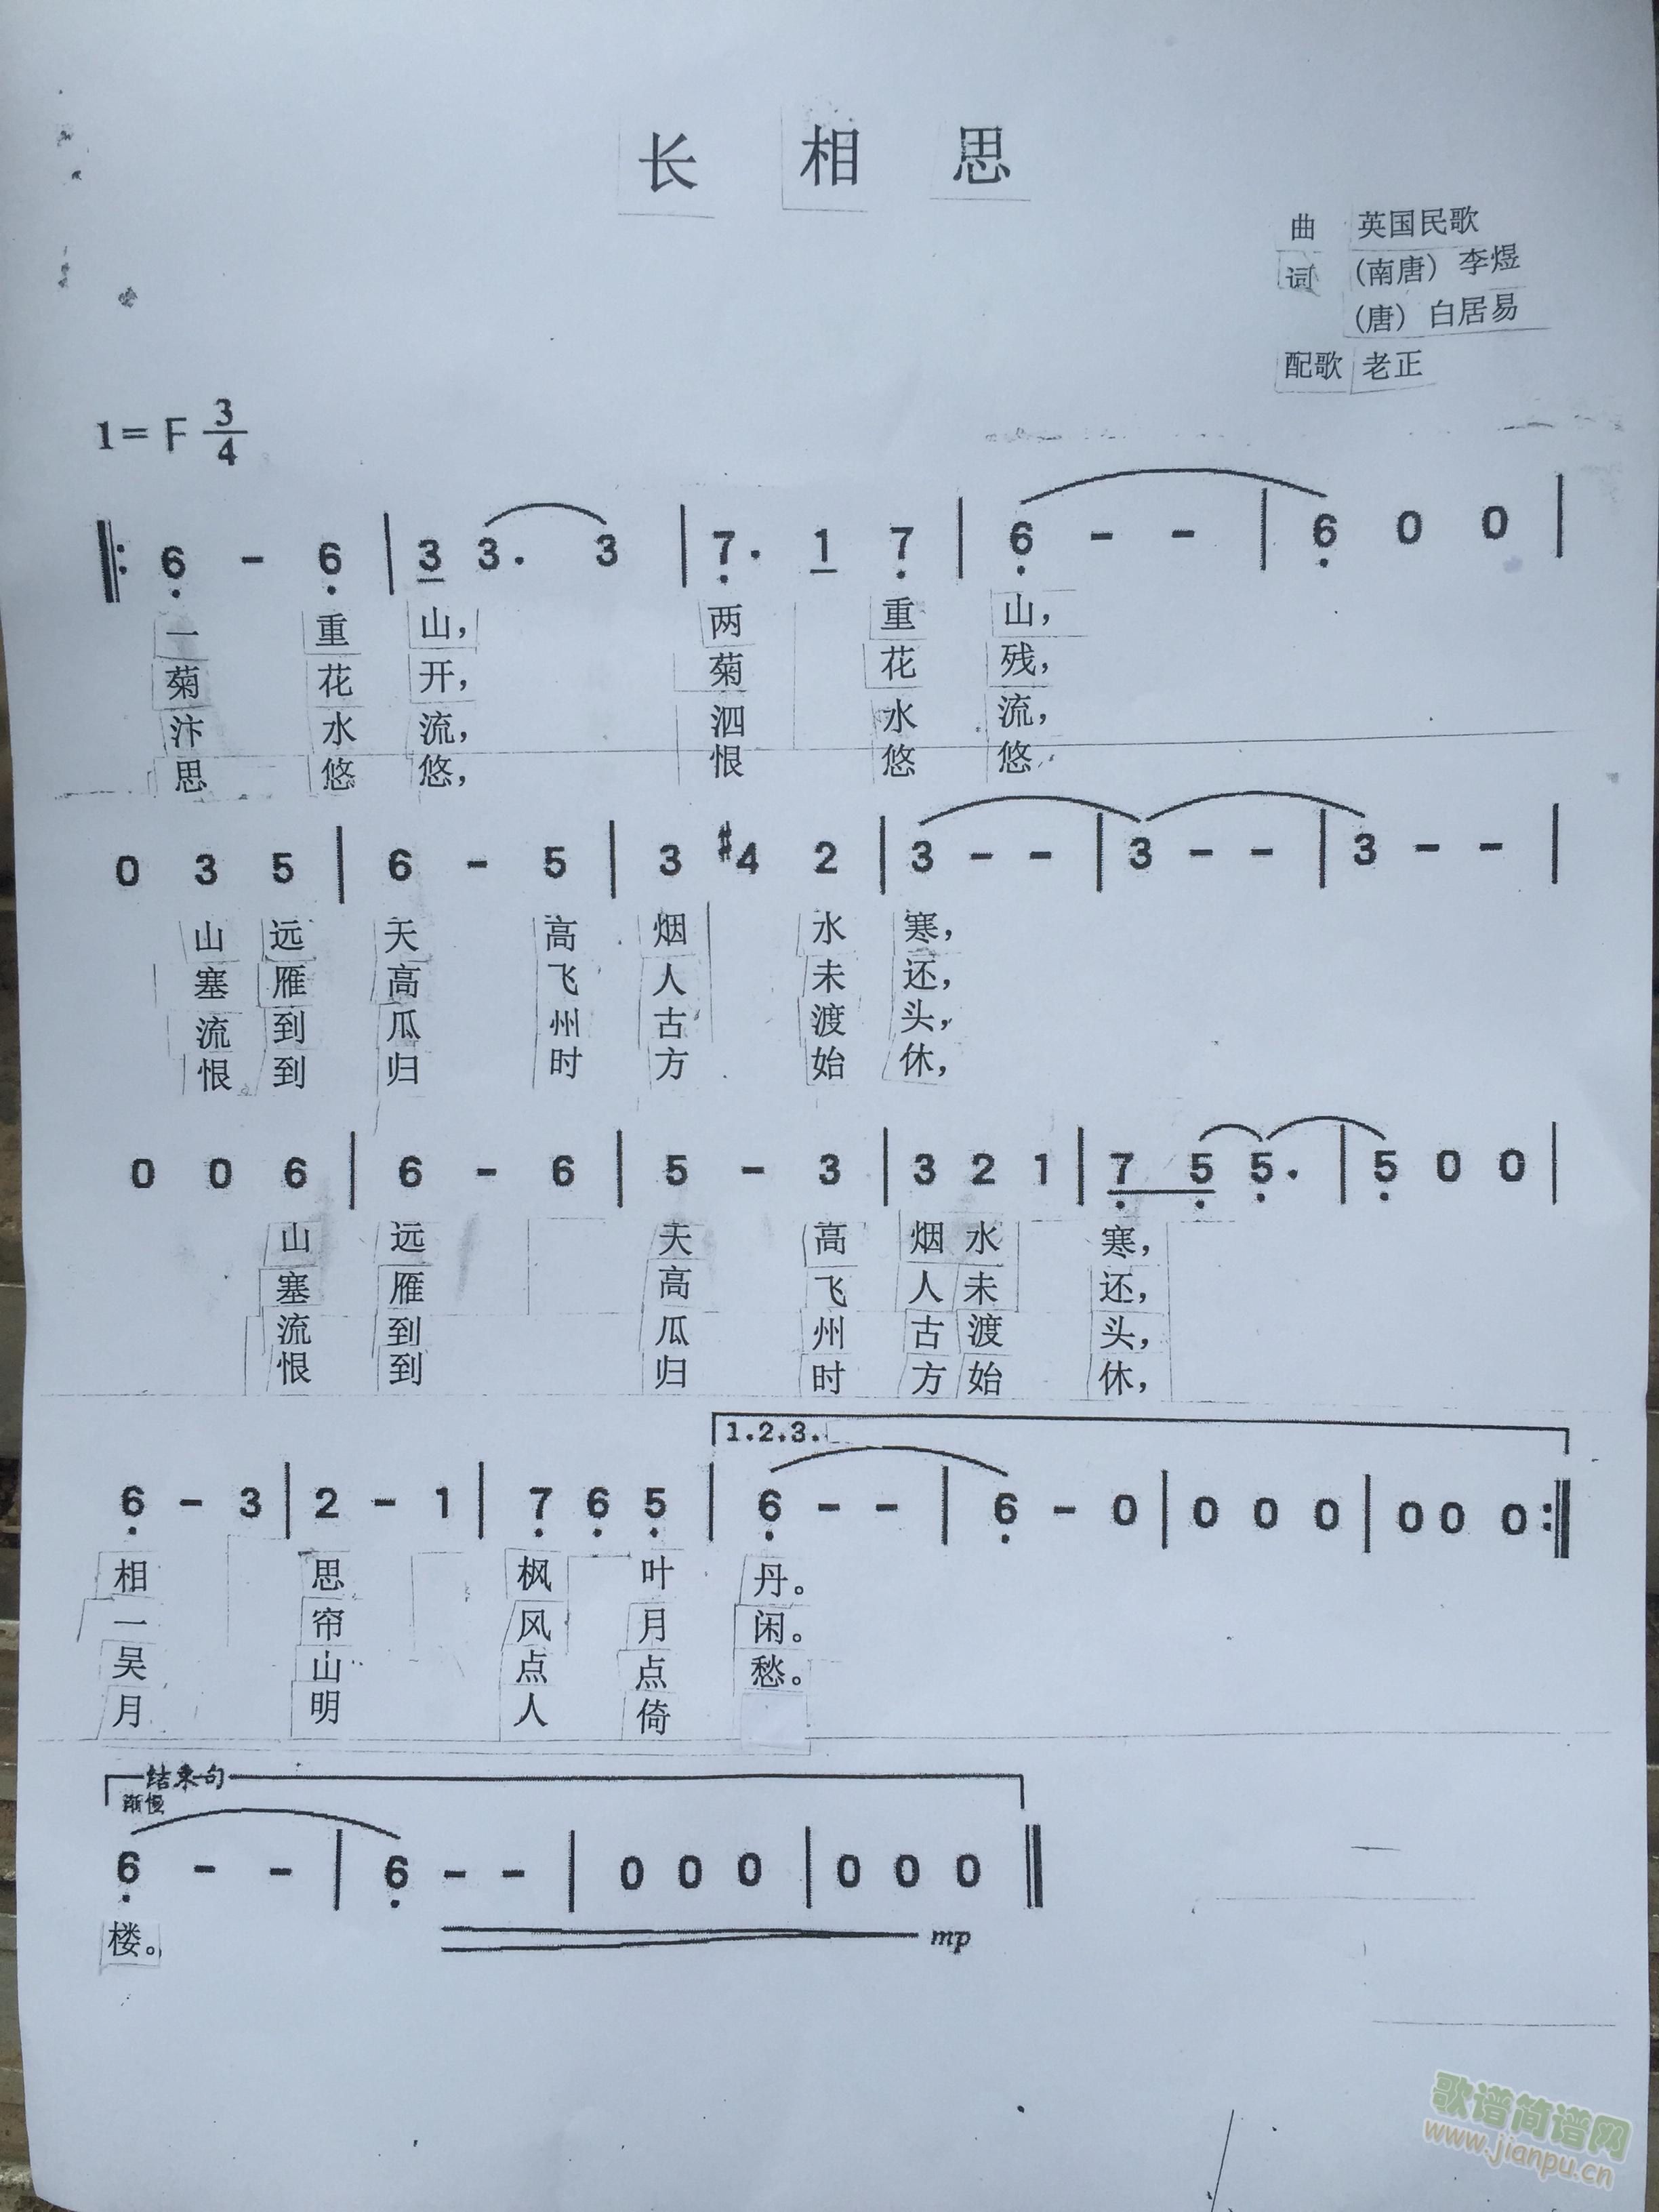 长 相 思
曲 英国民歌
词 (南唐) 李煜
(唐) 白居易
配歌 老正
1= F 3/4
6 - 6 | 3 3. 3 | 7. 1 7 | 6 - - | 6 0 0 |
一 重 山, 两 重 山,
菊 花 开, 菊 花 残,
汴 水 流, 泗 水 流,
思 悠 悠, 恨 悠 悠,
0 3 5 | 6 - 5 | 3 #4 2 | 3 - - | 3 - - | 3 - - |
山 远 天 高 烟 水 寒,
塞 雁 高 飞 人 未 还,
流 到 瓜 州 古 渡 头,
恨 到 归 时 方 始 休,
0 0 6 | 6 - 6 | 5 - 3 | 3 2 1 | 7 5 5. | 5 0 0 |
山 远 天 高 烟 水 寒,
塞 雁 高 飞 人 未 还,
流 到 瓜 州 古 渡 头,
恨 到 归 时 方 始 休,
1.2.3.
6 - 3 | 2 - 1 | 7 6 5 | 6 - - | 6 - 0 | 0 0 0 | 0 0 0 :‖
相 思 枫 叶 丹。
一 帘 风 月 闲。
吴 山 点 点 愁。
月 明 人 倚
结束句
渐慢
6 - - | 6 - - | 0 0 0 | 0 0 0 ‖
楼。
mp
歌谱简谱网
www.jianpu.cn